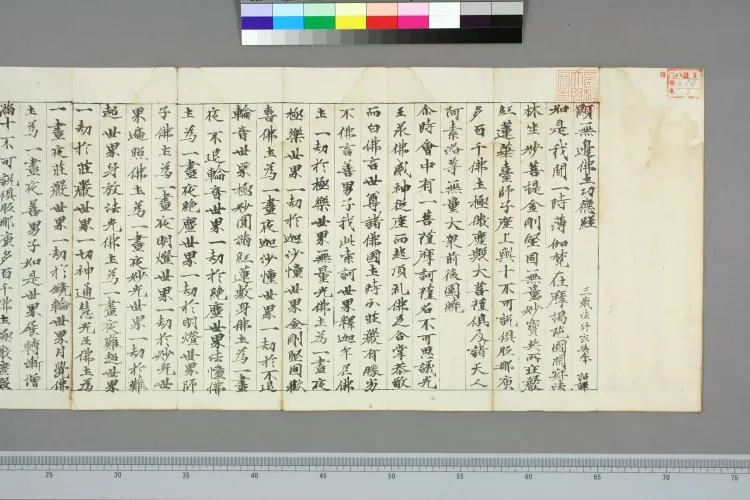 顯無邊佛土功德經
三藏法師玄奘奉 詔譯
如是我聞一時薄伽梵在摩揭陁國閑寂法
林坐妙菩提金剛堅固無量妙寶共所莊嚴
紅蓮華臺師子座上與十不可說俱胝那庾
多百千佛土極微塵數大菩薩俱及諸天人
阿素洛等無量大衆前後圍繞
尒時會中有一菩薩摩訶薩名不可思議光
王承佛威神從座而起頂礼佛足合掌恭敬
而白佛言世尊諸佛國土時分莊嚴有勝劣
不佛言善男子我此索訶世界釋迦牟尼佛
土一劫於極樂世界無量光佛土為一晝夜
極樂世界一劫於迦沙憧世界金剛堅固歡
喜佛土為一晝夜迦沙憧世界一劫於不退
輪音世界極妙圓滿紅蓮敷身佛土為一晝
夜不退輪音世界一劫於絕塵世界法憧佛
土為一晝夜絕塵世界一劫於明燈世界師
子佛土為一晝夜明燈世界一劫於妙光世
界遍照佛土為一晝夜妙光世界一劫於難
超世界身放法光佛土為一晝夜難超世界
一劫於莊嚴世界一切神通慧光王佛土為
一晝夜莊嚴世界一劫於鏡輪世界月覺佛
土為一晝夜善男子如是世界展轉漸增
滿十不可說俱胝那庾多百千佛土極微塵數